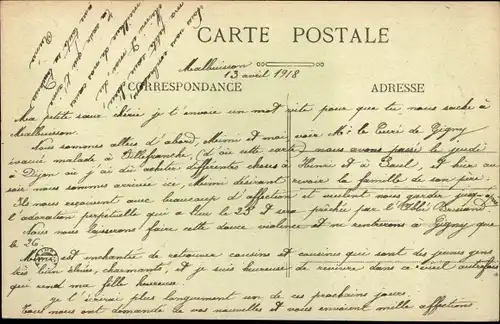 CARTE POSTALE
Malbuisson
13 avril 1918
CORRESPONDANCE
ADRESSE
Ma petite sœur chérie je t'envoie un mot vite pour que tu nous sache à
Malbuisson.
Nous sommes allées d'abord, Mimi et moi voir M. le Curé de Gigny
évacué malade à Villefranche, (d'où cette carte) nous avons passé le jeudi
à Dijon où j'ai dû acheter différentes choses à Henri et à Paul, et hier au
soir nous sommes arrivées ici, Mimi désirant revoir la famille de son père.
Ils nous reçoivent avec beaucoup d'affection et veulent nous garder jusqu'à
l'adoration perpétuelle qui a lieu le 25 et sera prêchée par l'Abbé
Nous nous laisserons faire cette douce violence et ne rentrerons à Gigny que
le 26.
Mimi est enchantée de retrouver cousins et cousines qui sont des jeunes gens
très bien élevés, charmants, et je suis heureuse de revivre dans ce vieil autrefois
qui rend ma fille heureuse.
Je t'écrirai plus longuement un de ces prochains jours.
Tous nous ont demandé de vos nouvelles et vous envoient mille affections